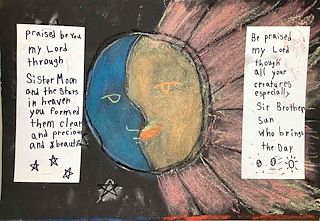 praised be You
my Lord
through
Sister Moon
and the Stars
in heaven
you formed
them clear
and precious
and beautiful
Be praised
my Lord
though
all your
creatures
especially
Sir Brother
Sun
who brings
the Day